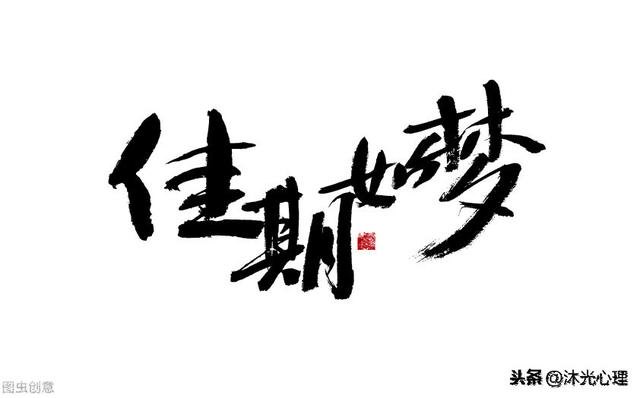 佳期如梦
图虫创意
头条@沐光心理